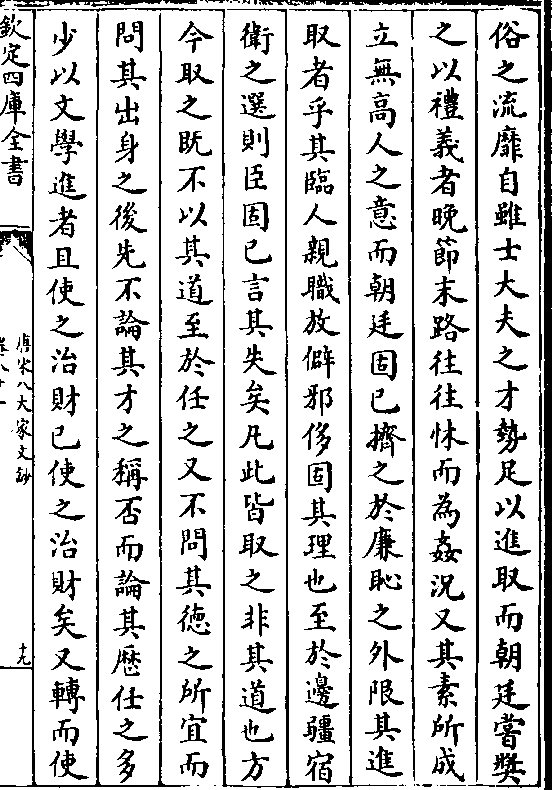 俗之流靡自雖士大夫之才勢足以進取而朝廷嘗奬
之以禮義者晚節末路往往怵而為姦況又其素所成
立無高人之意而朝廷固已擠之於廉恥之外限其進
取者乎其臨人親職放僻邪侈固其理也至於邊疆宿
衛之選則臣固已言其失矣凡此皆取之非其道也方
今取之既不以其道至於任之又不問其德之所宜而
問其出身之後先不論其才之稱否而論其歷任之多
少以文學進者且使之治財已使之治財矣又轉而使
欽定四庫全書
唐宋八大家文鈔
卷八十一
十九